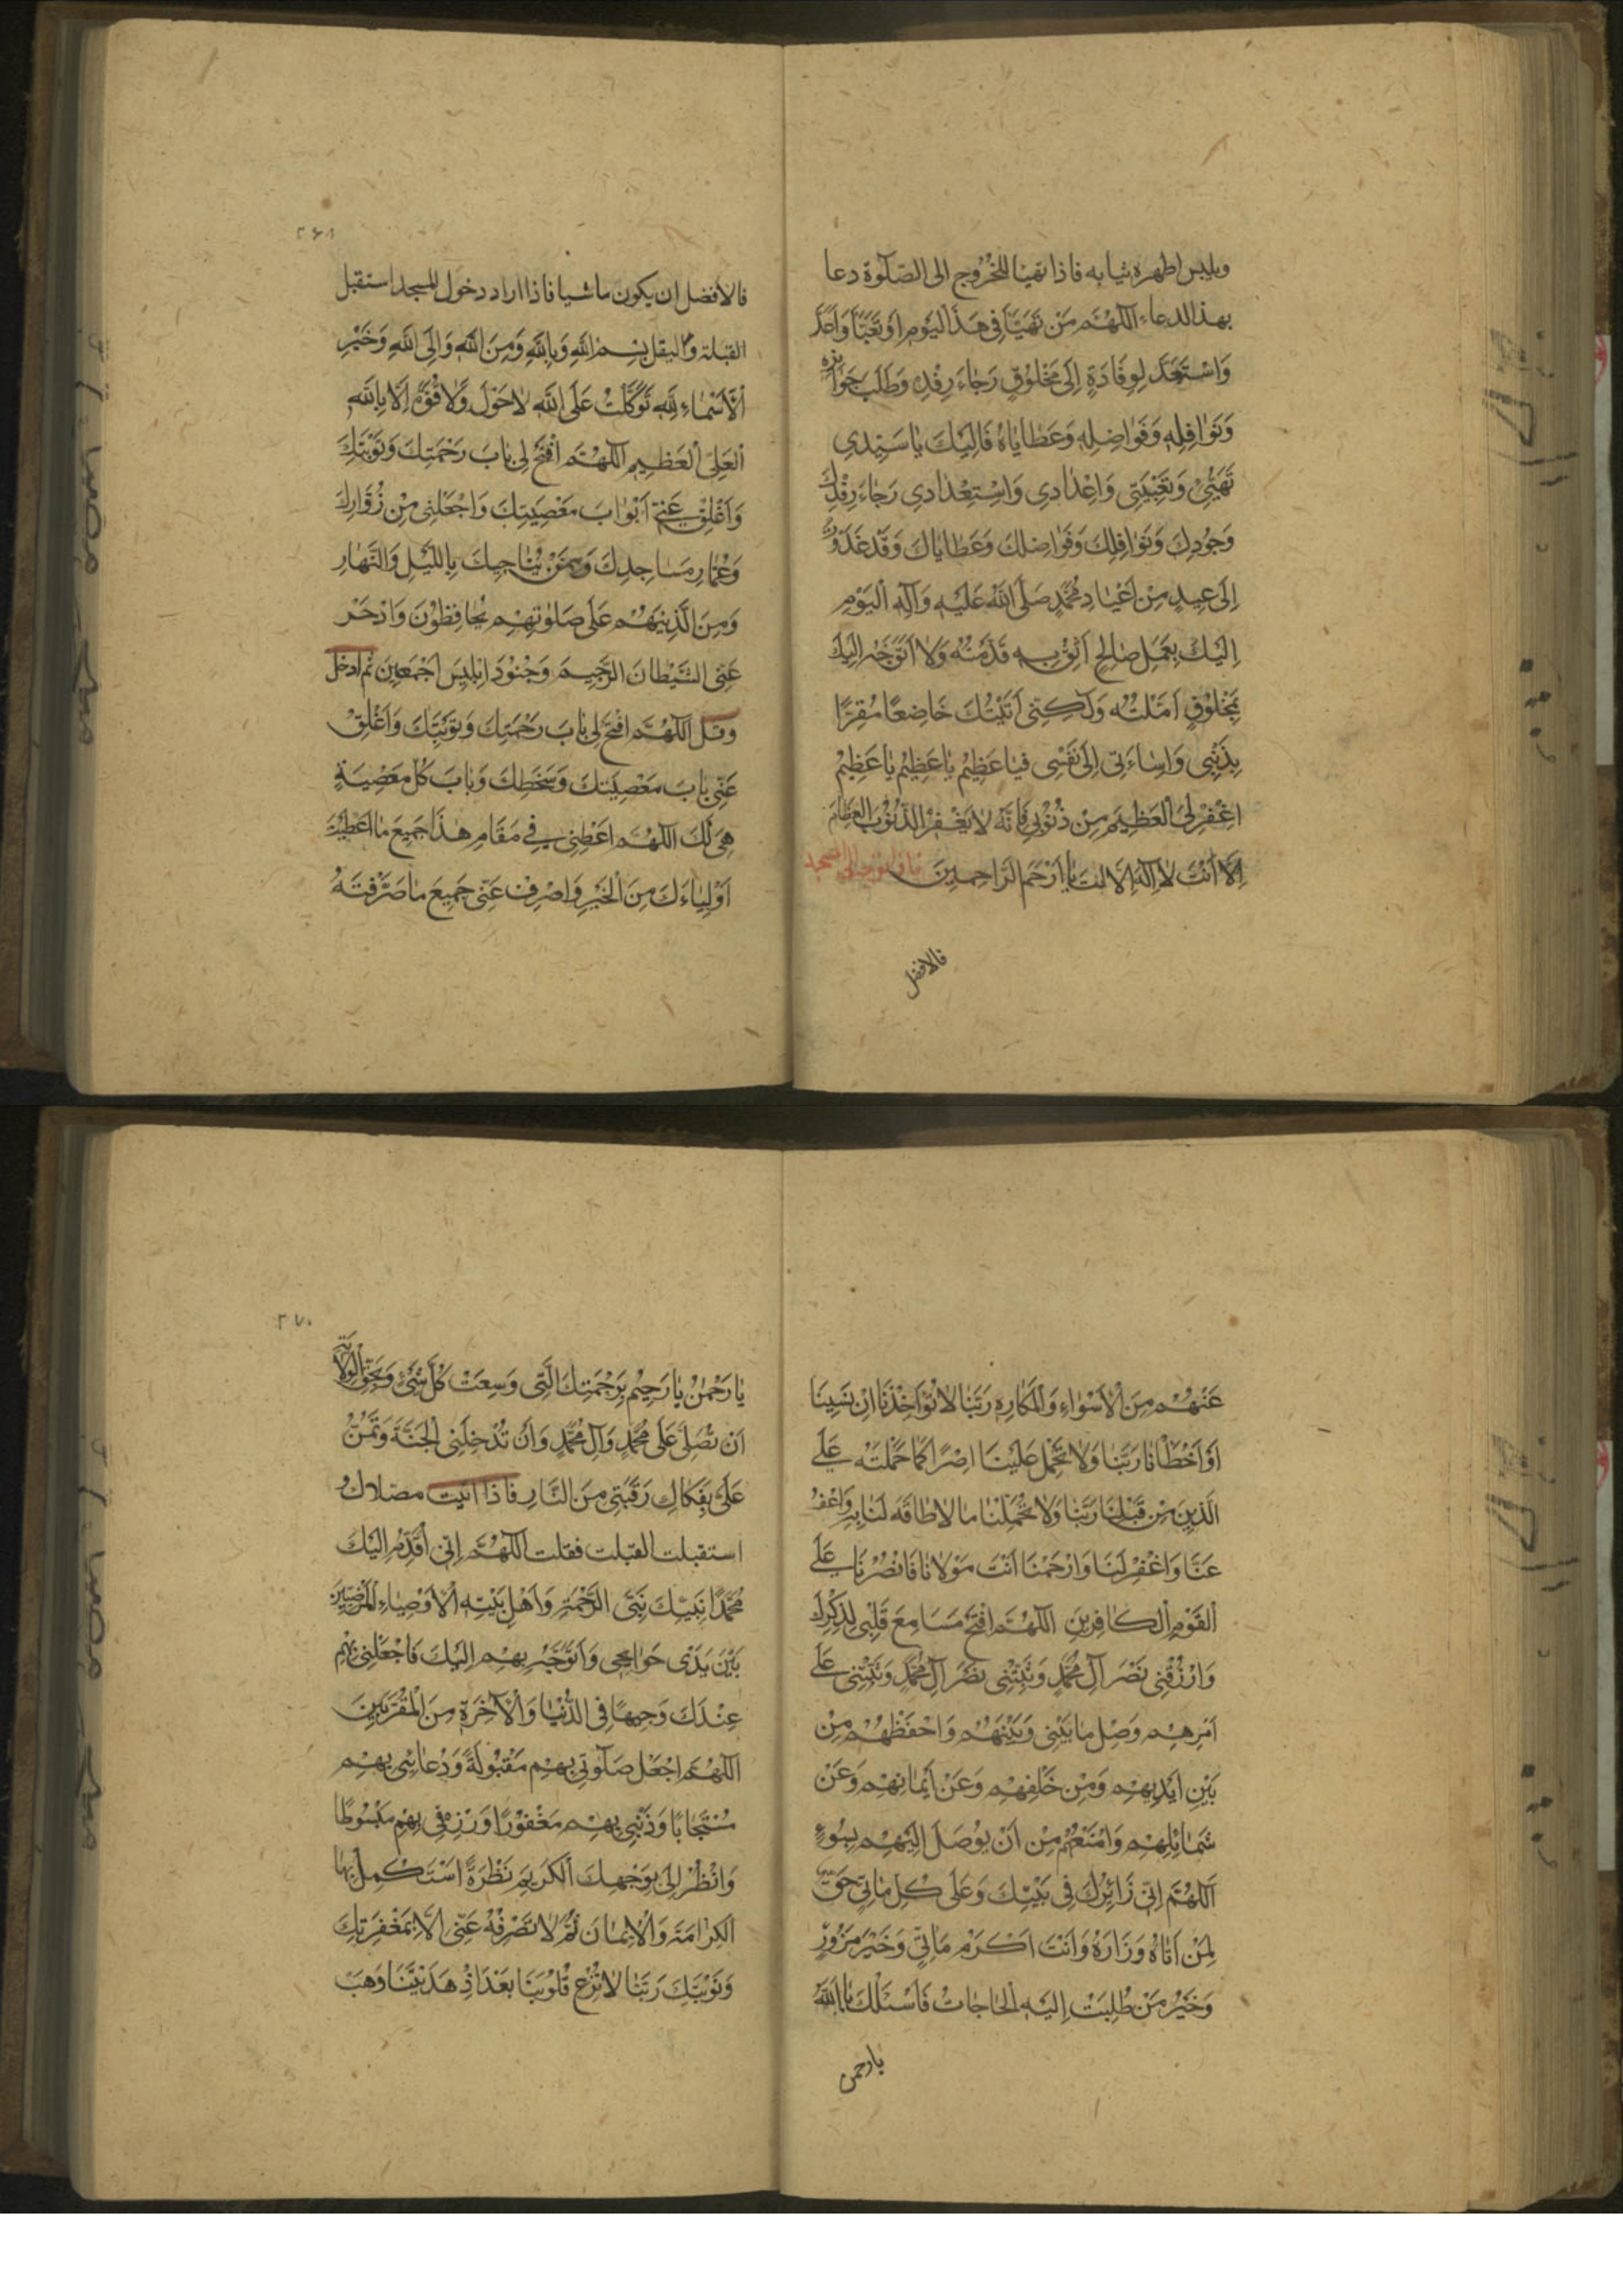 ويلبس اطهر ثيابه فاذا تهيا للخُرُوج الى الصّلٰوة دعا
بهذا لدعاء اَللّهُمَّ مَن تَهَيَّاَ فِى هَذَا اليَومِ اَو تَعَبَّاَ وَاَعَدَّ
وَاسْتَعَدَّ لِوِفَادَةٍ اِلىٰ مَخْلوُقٍ رَجٰاءَ رِفْدِهِ وَطَلَبَ جَوٰائزِهِ
وَنَوٰافِلِهِ وَفَوٰاضِلِهِ وَعَطٰايٰاهُ فَاِلَيْكَ يٰا سَيِّدِى
تَهَيُّئِى وَتَعْبِيَتِى وَاِعْدٰادِى وَاسْتِعْدٰادِى رَجٰاءَ رِفْدِكَ
وَجُودِكَ وَنَوٰافِلِكَ وَفَوٰاضِلكَ وَعَطٰايٰاكَ وَقَد غَدَوْتُ
اِلىٰ عِيدٍ مِنْ اَعْيٰادِ مُحَمَّدٍ صَلَّى اللهُ عَلَيْهِ وَآلِهِ اَليَوْمِ
اِلَيْكَ بِعَمَلٍ صٰالِحٍ اَثِقُ بِهِ قَدَّمْتُهُ وَلاٰ اَتَوَجَّهُ اِلَيْكَ
بِمَخْلُوقٍ اَمَّلْتُهُ وَلٰكِنِّى اَتَيْتُكَ خٰاضِعًا مُقِرًّا
بِذَنْبِى وَاِسٰاءَتِى اِلىٰ نَفْسِى فَيٰا عَظِيمُ يٰا عَظِيمُ يٰا عَظِيمُ
اغْفِرْ لِىَ الْعَظِيمَ مِنْ ذُنُوبِى فَاِنَّهُ لاٰ يَغْفِرُ الذُّنُوبَ العِظٰامَ
اِلاّٰ اَنْتَ لاٰ اِلٰهَ اِلاّٰ انتَ يٰا اَرْحَمَ الرّٰاحِمِينَ فاذا توجه الى المسجد
فالافضل
۲۶۹
فالأفضل ان يكون ماشيا فاذا اراد دخول المسجد استقبل
القبلة واليقل بِسْمِ اللهِ وَبِاللهِ وَمِنَ اللهِ وَاِلَى اللهِ وَخَيْرِ
اَلْاَسْمٰاءِ لِلّهِ تَوَكَّلْتُ عَلَى اللهِ لاٰ حَوْلَ وَلاٰ قُوَّةَ اِلاّٰ بِاللهِ
الْعَلِىِّ الْعَظِيمِ اَللّهُمَّ افْتَحْ لِى بٰابَ رَحْمَتِكَ وَتَوْبَتِكَ
وَاَغْلِقْ عَنِّى اَبْوٰابَ مَعْصِيَتِكَ وَاجْعَلْنِى مِنْ زُوّٰارِكَ
وَعُمّٰارِ مَسٰاجِدِكَ وَمِمَّنْ يُنٰاجِيكَ بِاللَّيْلِ وَالنَّهٰارِ
وَمِنَ الَّذِينَ هُمْ عَلىٰ صَلٰوتِهِمْ يُحٰافِظُونَ وَادْحَرْ
عَنِّى الشَّيْطٰانَ الرَّجِيمَ وَجُنُودَ اِبْلِيسَ اَجْمَعِينَ ثم ادخل
وقل اَللّهُمَّ افْتَحْ لِى بٰابَ رَحْمَتِكَ وَتَوْبَتِكَ وَاَغْلِقْ
عَنِّى بٰابَ مَعْصِيَتِكَ وَسَخَطِكَ وَبٰابَ كُلِّ مَعْصِيَةٍ
هِىَ لَكَ اَللّهُمَّ اَعْطِنِى فِى مَقٰامِ هٰذَا جَمِيعَ مٰا اَعْطَيْتَ
اَوْلِيٰاءَكَ مِنَ الْخَيْرِ وَاصْرِفْ عَنِّى جَمِيعَ مٰا صَرَفْتَهُ
عَنْهُمْ مِنَ الْاَسْوٰاءِ وَالْمَكٰارِهِ رَبَّنٰا لاٰ تُؤٰاخِذْنَا اِنْ نَسِينٰا
اَوْ اَخْطَاْنٰا رَبَّنٰا وَلاٰ تَحْمِلْ عَلَيْنٰا اِصْرًا كَمٰا حَمَلْتَهُ عَلَى
الَّذِينَ مِنْ قَبْلِنٰا رَبَّنٰا وَلاٰ تُحَمِّلْنٰا مٰا لاٰ طٰاقَةَ لَنٰا بِهِ وَاعْفُ
عَنّٰا وَاغْفِرْ لَنٰا وَارْحَمْنٰا اَنْتَ مَوْلاٰنٰا فَانْصُرْنٰا عَلَى
الْقَوْمِ الْكٰافِرِينَ اَللّهُمَّ افْتَحْ مَسٰامِعَ قَلْبِى لِذِكْرِكَ
وَارْزُقْنِى نَصْرَ آلِ مُحَمَّدٍ وَثَبِّتْنِى نَصْرَ آلِ مُحَمَّدٍ وَثَبِّتْنِى عَلىٰ
اَمْرِهِمْ وَصِلْ مٰا بَيْنِى وَبَيْنَهُمْ وَاحْفَظْهُمْ مِنْ
بَيْنِ اَيْدِيهِمْ وَمِنْ خَلْفِهِمْ وَعَنْ اَيْمٰانِهِمْ وَعَنْ
شَمٰائِلِهِمْ وَامْنَعْهُمْ مِنْ اَنْ يُوصَلَ اِلَيْهِمْ بِسُوءٍ
اَللّهُمَّ اِنِّى زٰائِرُكَ فِى بَيْتِكَ وَعَلىٰ كُلِّ مَاْتِىٍّ حَقٌّ
لِمَنْ اَتٰاهُ وَزٰارَهُ وَاَنْتَ اَكْرَمُ مَاْتِىٍّ وَخَيْرُ مَزُورٍ
وَخَيْرُ مَنْ طُلِبَتْ اِلَيْهِ الْحٰاجٰاتُ فَاَسْئَلُكَ يٰا اَللهُ
يارحمن
۲۷۰
يٰا رَحْمٰنُ يٰا رَحِيمُ بِرَحْمَتِكَ الَّتِى وَسِعَتْ كُلَّ شَىْءٍ وَبِحَقِّ الْوِلاٰيَةِ
اَنْ تُصَلِّىَ عَلىٰ مُحَمَّدٍ وَآلِ مُحَمَّدٍ وَاَنْ تُدْخِلَنِى الْجَنَّةَ وَتَمُنَّ
عَلَىَّ بِفَكٰاكِ رَقَبَتِى مِنَ النّٰارِ فاذا اتيت مصلاك
استقبلت القبلت فقلت اَللّهُمَّ اِنِّى اُقَدِّمُ اِلَيْكَ
مُحَمَّدًا نَبِيَّكَ نَبِىَّ الرَّحْمَةِ وَاَهْلَ بَيْتِهِ الْاَوْصِيٰاءِ الْمَرْضِيِّينَ
بَيْنَ يَدَىْ حَوٰائِجِى وَاَتَوَجَّهُ بِهِمْ اِلَيْكَ فَاجْعَلْنِى بِهِمْ
عِنْدَكَ وَجِيهًا فِى الدُّنْيٰا وَالْآخِرَةِ مِنَ الْمُقَرَّبِينَ
اَللّهُمَّ اجْعَلْ صَلٰوتِى بِهِمْ مَقْبُولَةً وَدُعٰائِى بِهِمْ
مُسْتَجٰابًا وَذَنْبِى بِهِمْ مَغْفُورًا وَرِزْقِى بِهِمْ مَبْسُوطًا
وَانْظُرْ اِلَىَّ بِوَجْهِكَ الْكَرِيمِ نَظْرَةً اَسْتَكْمِلُ بِهَا
الْكَرٰامَةَ وَالْاِيمٰانَ ثُمَّ لاٰ تَصْرِفْهُ عَنِّى اِلاّٰ بِمَغْفِرَتِكَ
وَتَوْبَتِكَ رَبَّنٰا لاٰ تُزِغْ قُلُوبَنٰا بَعْدَ اِذْ هَدَيْتَنٰا وَهَبْ